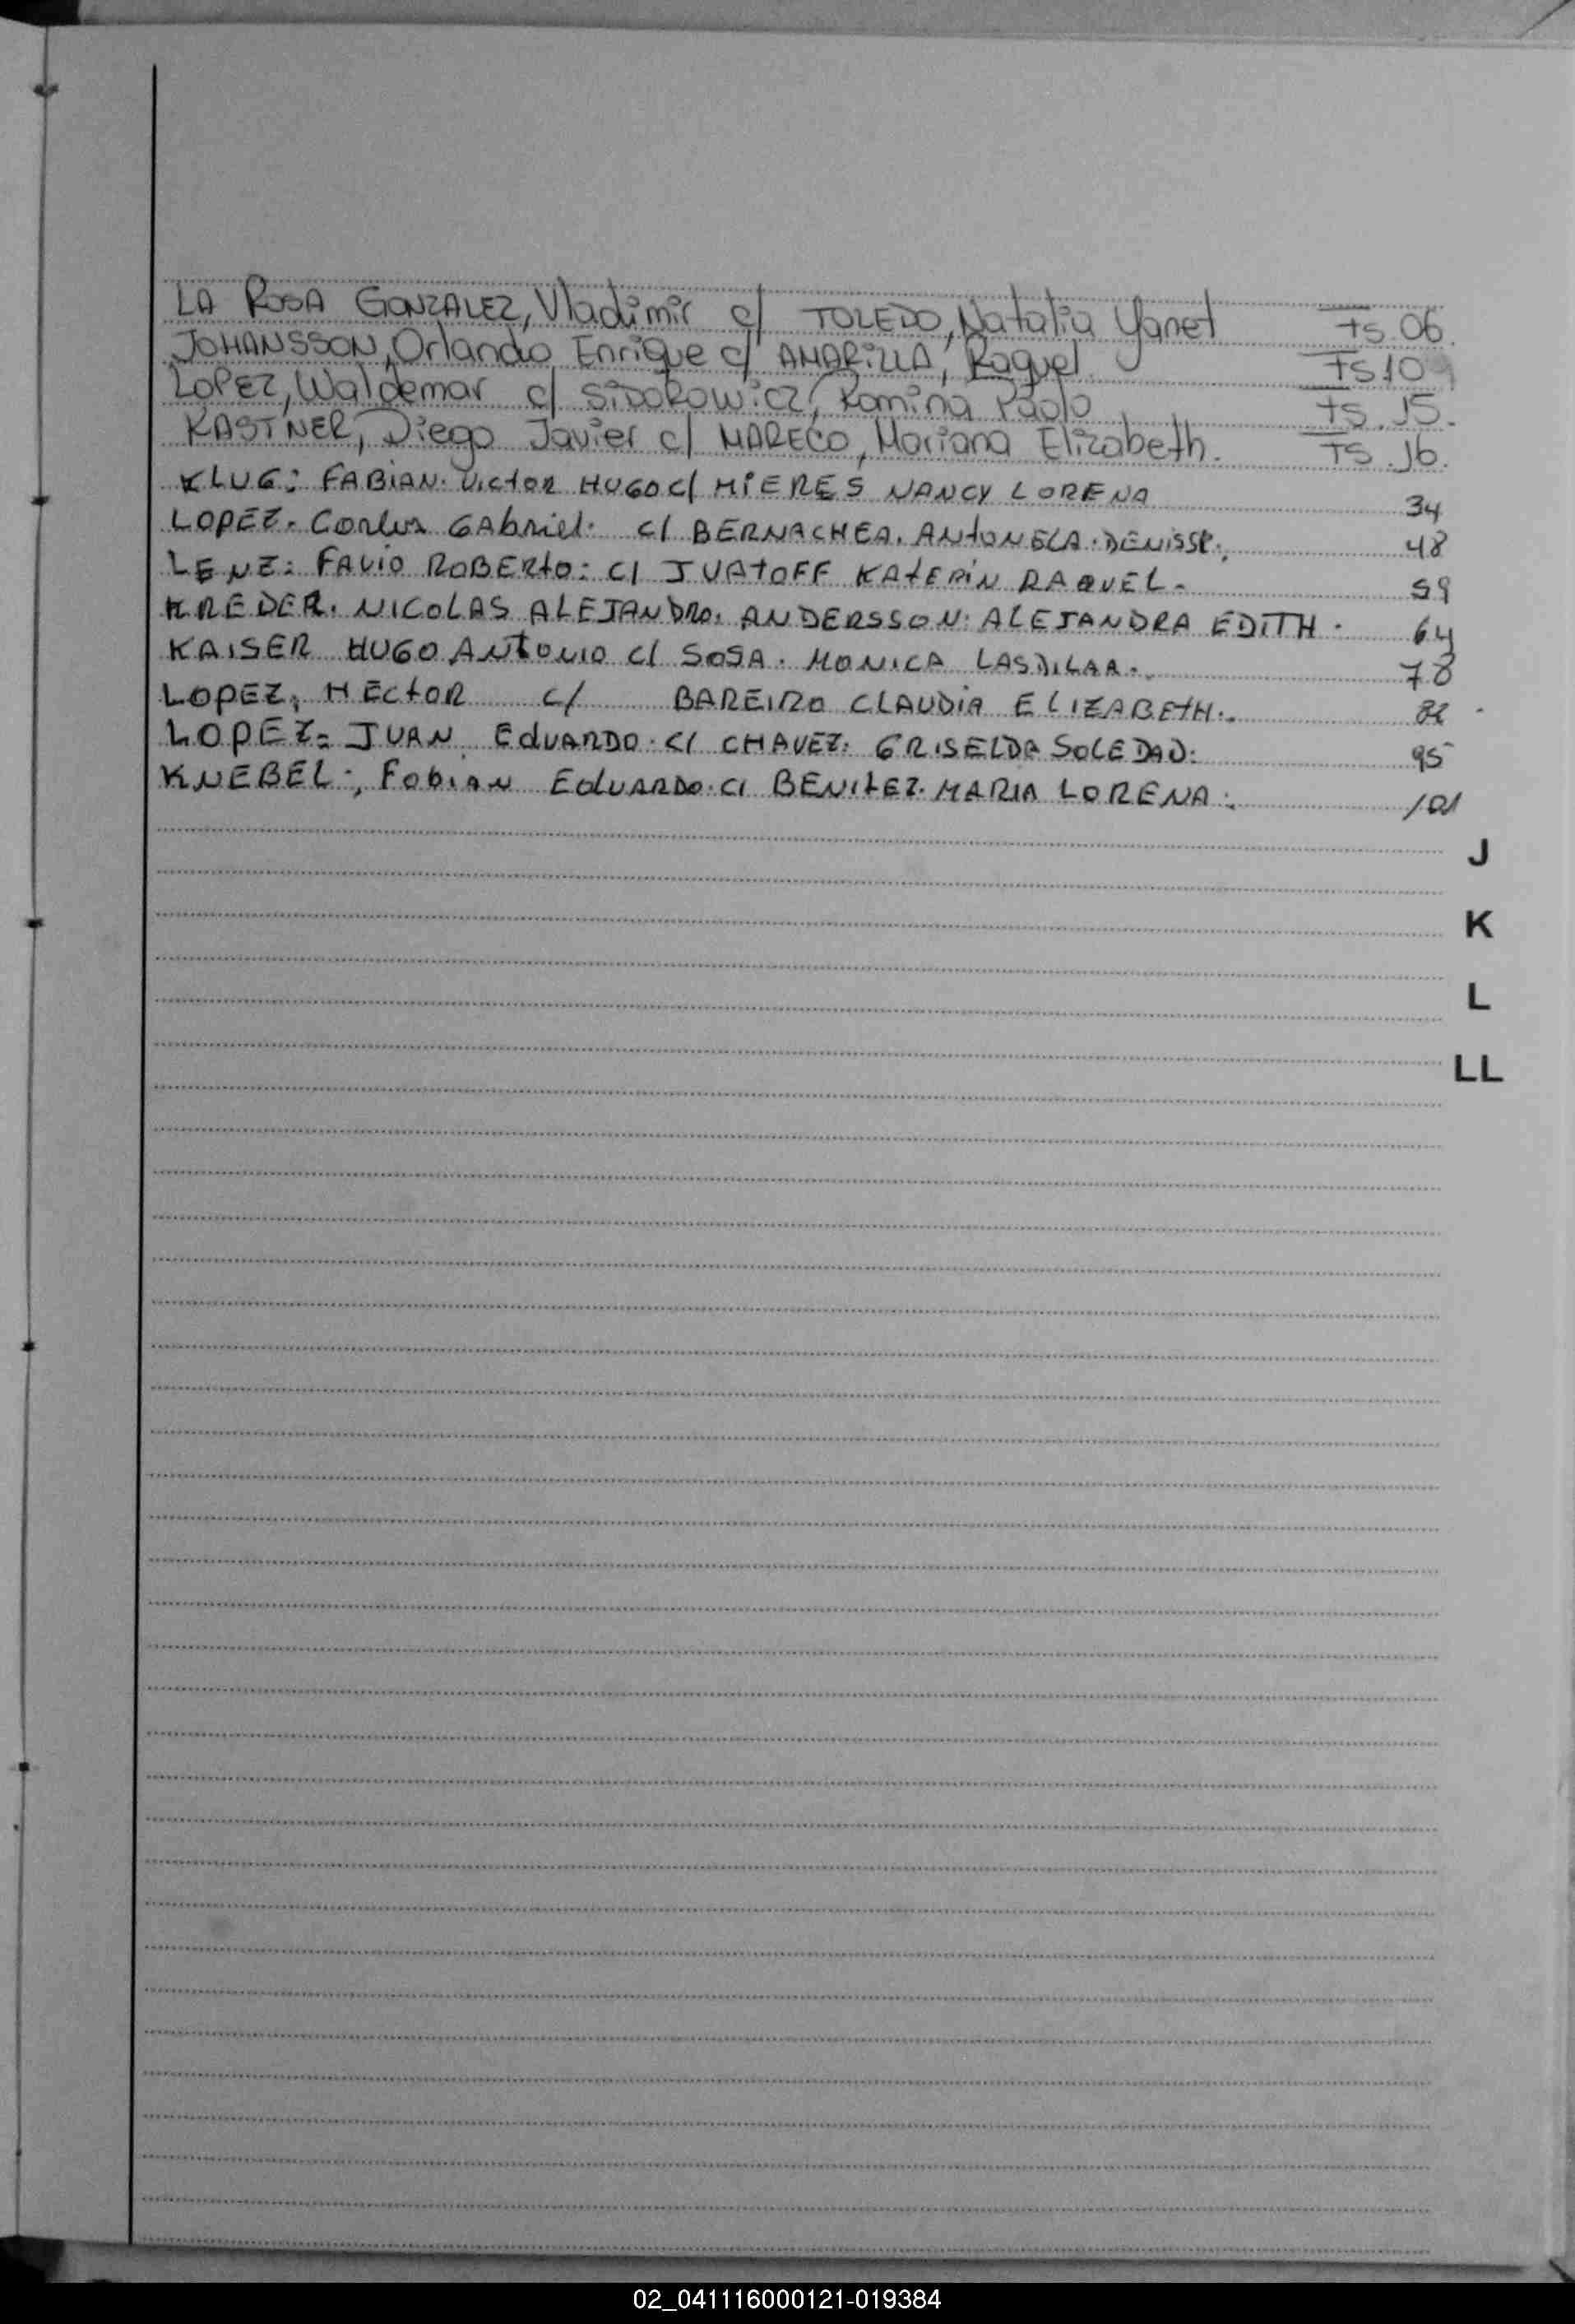 LA ROSA GONZALEZ, Vladimir c/ TOLEDO, Natalia Yanet Fs. 06.
JOHANSSON, Orlando Enrique c/ AMARILLA, Raquel. Fs 10
LOPEZ, Waldemar c/ SIDOROWICZ, Romina Paola Fs. 15.
KASTNER, Diego Javier c/ MARECO, Mariana Elizabeth. Fs. 16.
KLUG: FABIAN. Victor HUGO C/ MIERES NANCY LORENA 34
LOPEZ. Carlos GAbriel. C/ BERNACHEA. ANtONELA. DENISSE. 48
LENZ: FAVIO ROBERtO: C/ JUAtOFF KAtERIN RAQUEL. 59
KREDER. NICOLAS ALEJANDRO. ANDERSSON. ALEJANDRA EDITH. 64
KAISER HUGO ANtONIO C/ SOSA. MONICA 78
LOPEZ, HECtOR C/ BAREIRO CLAUDIA ELIZABEtH.
LOPEZ. JUAN EdUARDO. C/ CHAVEZ. GRISELDA SOLEDAD. 95
KNEBEL, FabiAN EdUARDO. C/ BENItEZ. MARIA LORENA. 101
J
K
L
LL
02_041116000121-019384